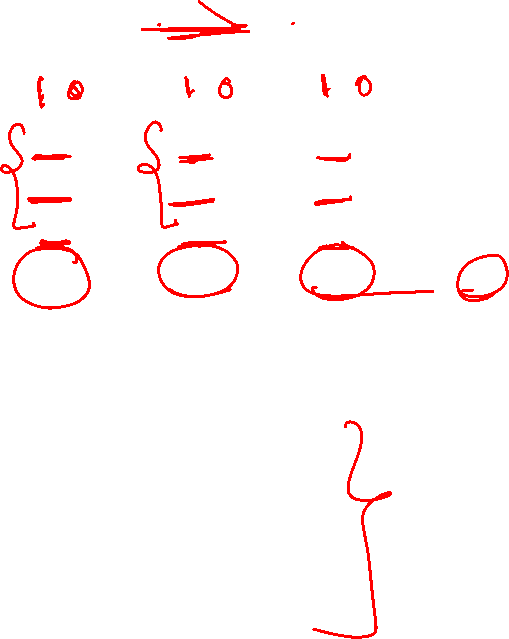 10 10 10